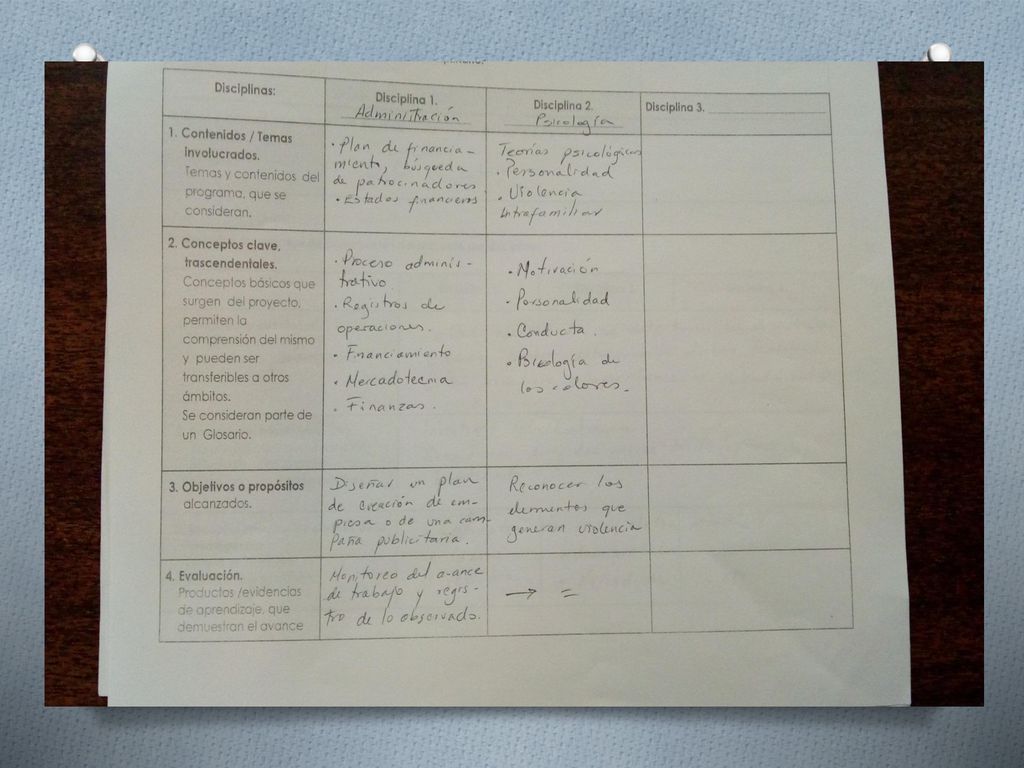 Disciplinas:
Disciplina 1.
Administración
Disciplina 2.
Psicología
Disciplina 3. _______________
1. Contenidos / Temas
involucrados.
Temas y contenidos del
programa, que se
consideran.
· Plan de financia-
miento, búsqueda
de patrocinadores
· Estados financieros
Teorías psicológicas
· Personalidad
· Violencia
Intrafamiliar
2. Conceptos clave,
trascendentales.
Conceptos básicos que
surgen del proyecto,
permiten la
comprensión del mismo
y pueden ser
transferibles a otros
ámbitos.
Se consideran parte de
un Glosario.
· Proceso adminis-
trativo
· Registros de
operaciones.
· Financiamiento
· Mercadotecnia
· Finanzas.
· Motivación
· Personalidad
· Conducta.
· Psicología de
los colores.
3. Objetivos o propósitos
alcanzados.
Diseñar un plan
de creación de em-
presa o de una cam-
paña publicitaria.
Reconocer los
elementos que
generan violencia
4. Evaluación.
Productos /evidencias
de aprendizaje, que
demuestran el avance
Monitoreo del avance
de trabajo y regis-
tro de lo observado.
→ =